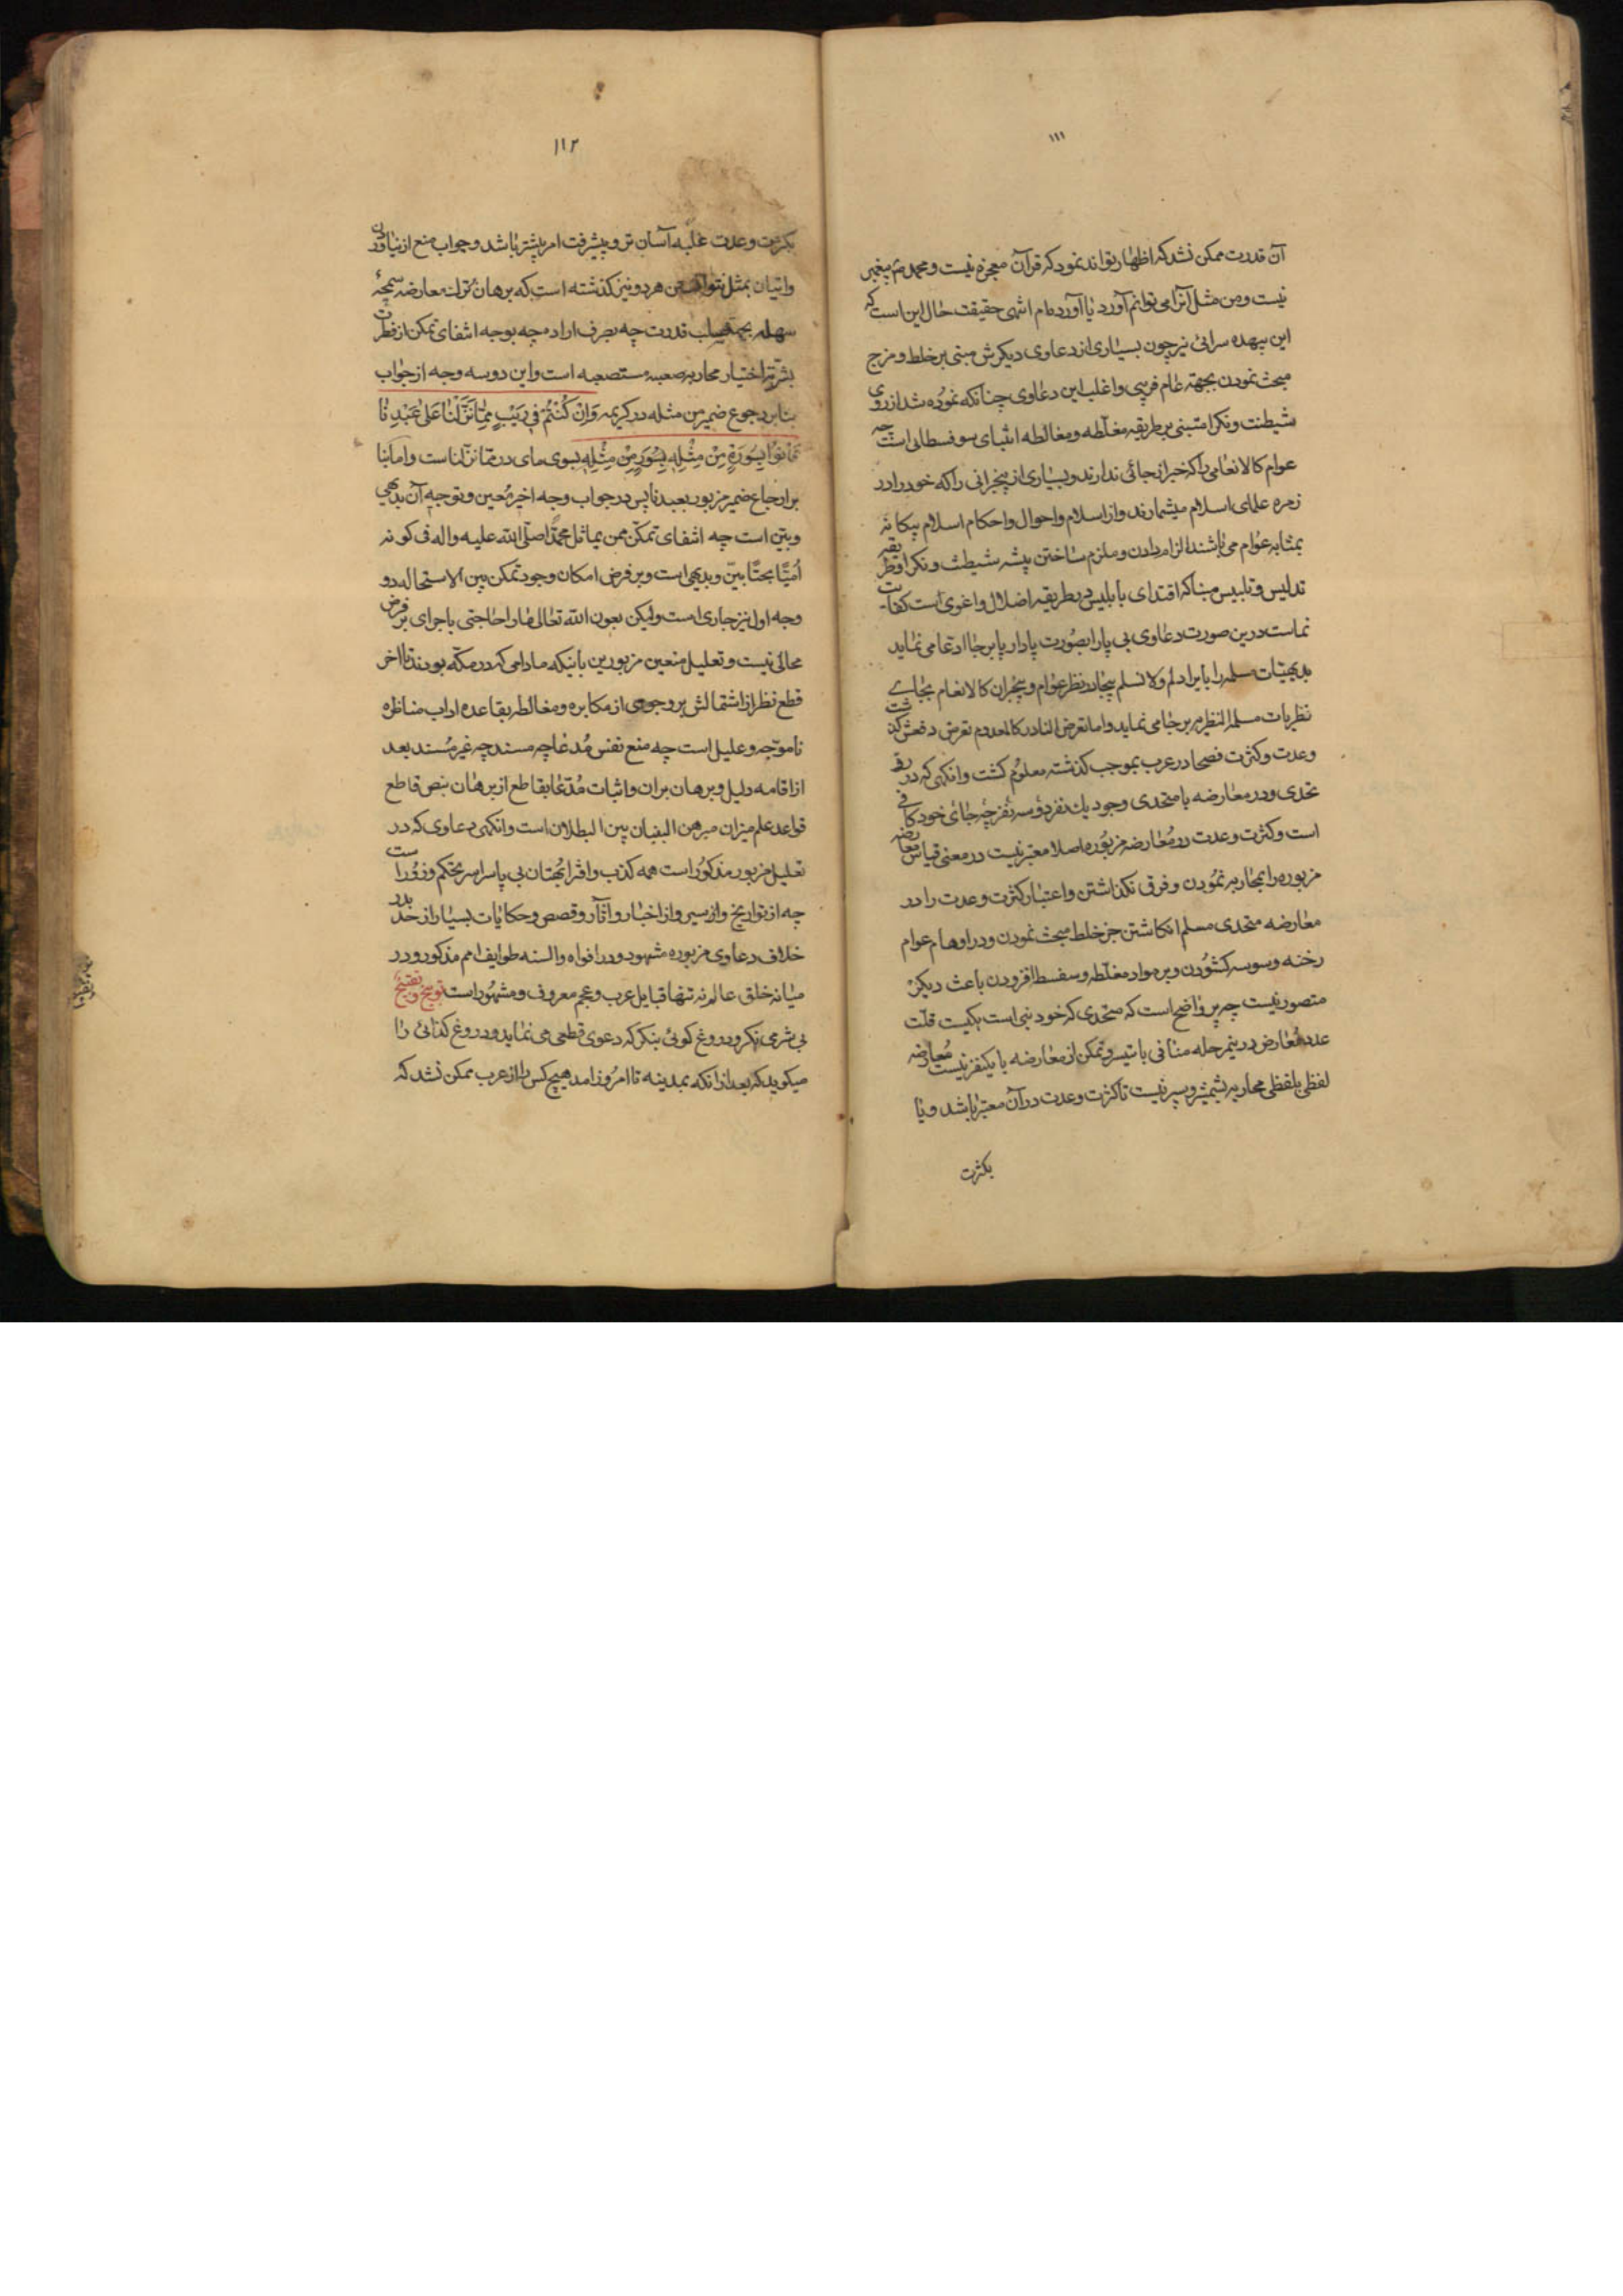 ۱۱۱
آن قدرت ممکن نشد که اظهار تواند نمود که قرآن معجزه نیست و محمد ص پیغمبر
نیست و من مثل آنرا می توانم آورد یا آورده ام انتهی حقیقت حال این است که
این بیهده سرائی نیز چون بسیاری از دعاوی دیگرش مبتنی بر خلط و مزج
مبحث نمودن بجهته عام فریبی و اغلب این دعاوی چنانکه نموده شد از روی
شیطنت و نکرا مبتنی بر طریقه مغلّطه و مغالطه اشباى سوفسطائی است چه
عوام کالانعامی را که خبر از جائی ندارند و بسیاری از بیخبرانی را که خود را در
زمره علمای اسلام میشمارند و از اسلام و احوال و احکام اسلام بیکانه
بمثابه عوام می باشند الزام دادن و ملزم ساختن پیشه شیطنت و نکرا و طریقه
تدلیس و تلبیس مبناکه اقتدای بابلیس در طریقه اضلال و اغوی است کفایت
نماست درین صورت دعاوی بی پا را بصورت پادار پا برجا ادعا می نماید
بدیهیّات مسلمه را بایراد لم ولا نسلم بیجا در نظر عوام و بیخبران کالانعام بجای
نظریات مسلمة النظریه بر جا می نماید و اما تعرض النادر کالمعدوم تعرض دفعش گذشت
وعدت و کثرت فصحا در عرب بموجب کذشته معلوم کشت وانکهی که در
تحدی و در معارضه با متحدی وجود یک نفر دو سه نفر چه جای خود کافی
است و کثرت وعدت در معارضه مزبوره اصلا معتبر نیست در معنی قیاس معارضه
مزبوره را بمحاربه نمودن و فرق نکذاشتن و اعتبار کثرت وعدت را در
معارضه متحدی مسلم انکاشتن جز خلط مبحث نمودن و در اوهام عوام
رخنه وسوسه کشودن و بر مواد مغلّطه و سفسطه افزودن باعث دیکر
متصور نیست چه پر واضح است که متحدی که خود نبی است یکیست قلّت
عدد معارض در ینمرحله منافی با تیسر و تمکن از معارضه با یکنفر نیست معارضه
لفظی بلفظی محاربه بشمشیر و سپر نیست تا کثرت وعدت در آن معتبر باشد و یا
بکثرت
۱۱۲
بکثرت وعدت غلبه آسان تر و پیشرفت امر بیشتر باشد و جواب منع از نیاوردن
و اتیان بمثل نتوانستن هر دو نیز کذشته است که برهان ترک معارضه سمحهٔ
سهله بجهة سلب قدرت چه بصرف اراده چه بوجه انتفای تمکن از فطرت
بشریّه اختیار محاربه صعبه مستصعبه است و این دو سه وجه از جواب
بنا بر رجوع ضمیر من مثله در کریمه وَاِنْ كُنْتُمْ فی رَیْبٍ مِمّا نَزَّلْنا عَلیٰ عَبْدِنا
فَأْتُوا بِسُورَةٍ مِنْ مِثْلِهِ بسوی مای در ممّا نزّلنا است و اما بنا
بر ارجاع ضمیر مزبور بعبدنا پس در جواب وجه اخیر معین و توجیه آن بدیهی
و بیّن است چه انتفای تمکّن ممن یماثل محمّداً صلّی الله علیه واله فی کونه
اُمّیًا بحتًا بیّن و بدیهی است و بر فرض امکان وجود تمکن بین الاستحاله دو
وجه اول نیز جاری است ولیکن بعون الله تعالی ما را حاجتی باجرای بر فرض
محالی نیست و تعلیل منعین مزبورین باینکه مادامی که در مکّه بودند تا اخر
قطع نظر از اشتمالش بر وجوهی از مکابره و مغالطه بقاعده اداب مناظره
ناموجّه و علیل است چه منع نفس مُدعا چه مسند چه غیر مُسند بعد
از اقامه دلیل و برهان بران و اثبات مُدّعا بقاطع از برهان بنص قاطع
قواعد علم میزان مبرهن البنیان بین البطلان است وانکهی دعاوی که در
تعلیل مزبور مذکور است همه کذب و افترا بهتان بی پا سراسر تحکم و زور است
چه از تواریخ و از سیر و از اخبار و آثار و قصص و حکایات بسیار از حد بدر
خلاف دعاوی مزبوره مشهود و در افواه و السنه طوایف امم مذکور و در
میانه خلق عالم نه تنها قبایل عرب و عجم معروف و مشهور است توبیخ و تفضیح
بی شرمی نکر و دروغ کوئی بنکر که دعوی قطعی می نماید و دروغ کذائی را
میکوید که بعد از انکه بمدینه تا امروز امد هیچ کس را از عرب ممکن نشد که